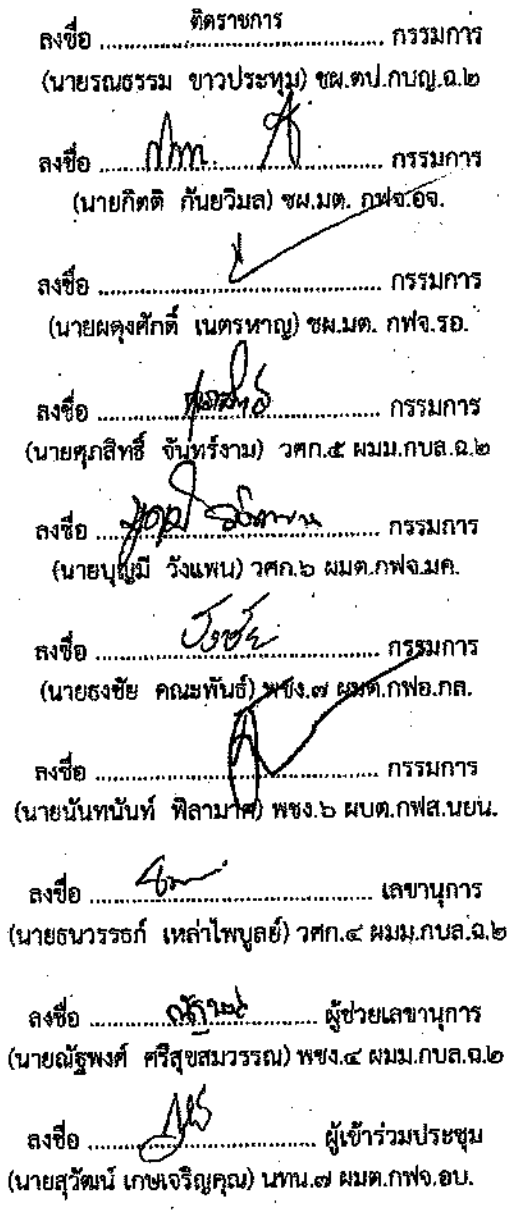 ติดราชการ
ลงชื่อ ........................................ กรรมการ
(นายรณธรรม ขาวประทุม) ชผ.ตป.กบญ.ฉ.๒
ลงชื่อ ........................................ กรรมการ
(นายกิตติ กันยวิมล) ชผ.มต. กฟจ.อจ.
ลงชื่อ ........................................ กรรมการ
(นายผดุงศักดิ์ เนตรหาญ) ชผ.มต. กฟจ.รอ.
ลงชื่อ ........................................ กรรมการ
(นายศุภสิทธิ์ จันทร์งาม) วศก.๕ ผมม.กบล.ฉ.๒
ลงชื่อ ........................................ กรรมการ
(นายบุญมี วังแพน) วศก.๖ ผมต.กฟจ.มค.
ลงชื่อ ธงชัย กรรมการ
(นายธงชัย คณะพันธ์) พชง.๗ ผมต.กฟอ.กล.
ลงชื่อ ........................................ กรรมการ
(นายนันทนันท์ พิลามาศ) พชง.๖ ผบต.กฟส.นยน.
ลงชื่อ ........................................ เลขานุการ
(นายธนวรรธก์ เหล่าไพบูลย์) วศก.๔ ผมม.กบล.ฉ.๒
ลงชื่อ ................................ ผู้ช่วยเลขานุการ
(นายณัฐพงศ์ ศรีสุขสมวรรณ) พชง.๔ ผมม.กบล.ฉ.๒
ลงชื่อ ................................ ผู้เข้าร่วมประชุม
(นายสุวัฒน์ เกษเจริญคุณ) นทน.๗ ผมต.กฟจ.อบ.